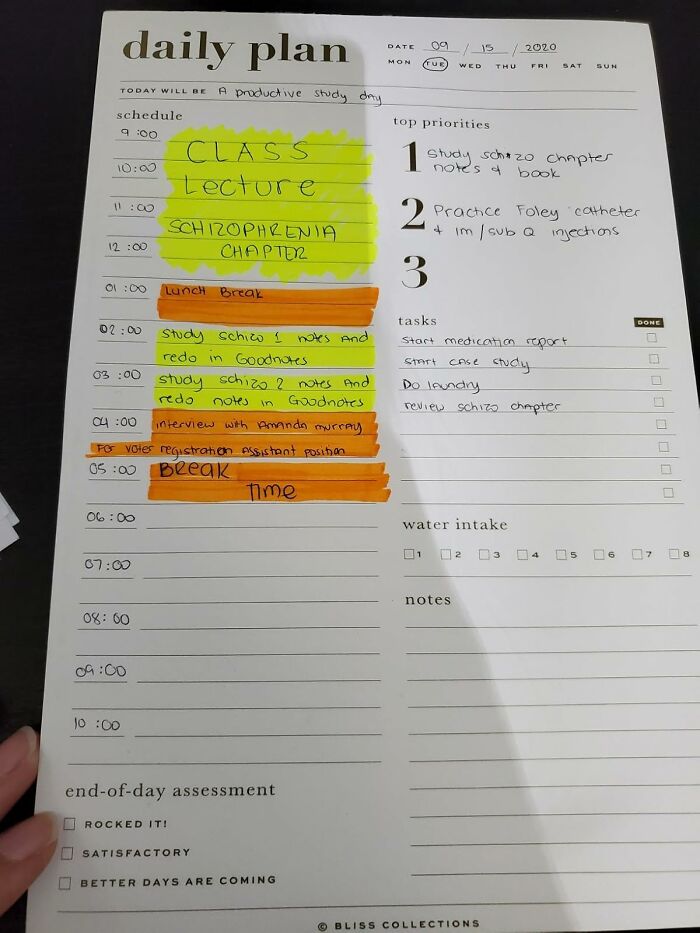 daily plan
DATE 09 / 15 / 2020
MON TUE WED THU FRI SAT SUN
TODAY WILL BE A productive study day
schedule
9:00
CLASS
10:00
Lecture
11:00
SCHIZOPHRENIA
12:00
CHAPTER
01:00
Lunch Break
02:00
study schizo 1 notes And
redo in Goodnotes
03:00
study schizo 2 notes And
redo notes in Goodnotes
04:00
interview with Amanda murray
For voter registration Assistant position
05:00
Break
Time
06:00
07:00
08:00
09:00
10:00
end-of-day assessment
ROCKED IT!
SATISFACTORY
BETTER DAYS ARE COMING
top priorities
1 study schizo chapter
notes & book
2 Practice Foley catheter
& Im/sub Q injections
3
tasks DONE
start medication report
start case study
Do laundry
review schizo chapter
water intake
1 2 3 4 5 6 7 8
notes
© BLISS COLLECTIONS